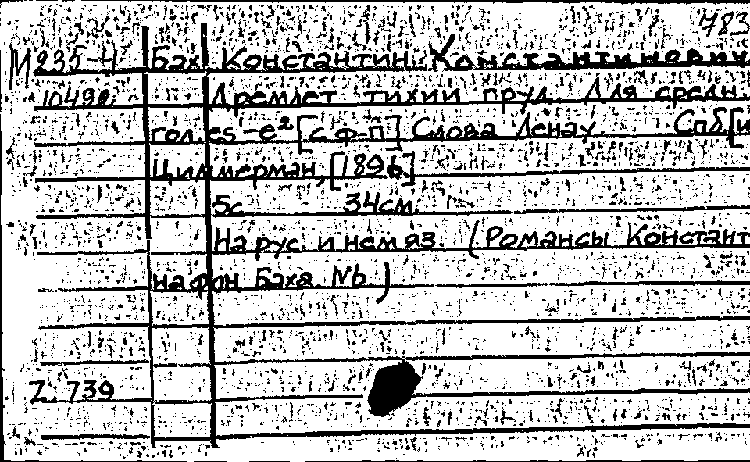 483
М 235-4 Бах Константин Константинович
10498 Дремлет тихий пруд. Для средн.
гол. es-e² [с ф-п] Слова Ленау. Спб, [и
Циммерман, [1896]
5с 34см.
На рус. и нем яз. (Романсы Констант
на фон Баха. №6.)
Z. 739